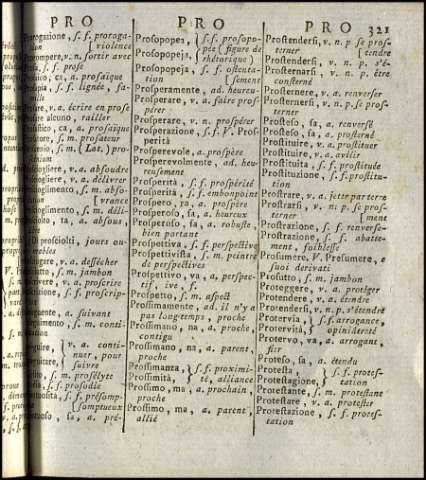 PRO
PRO
PRO
321
Prorogazione, s. f. proroga-
tion [violence
Prorompere, v. n. sortir avec
s. f. prose
ca, a. prosaïque
s. f. lignée, fa-
v. a. écrire en prose
alcuno, railler
ca, a. prosaïque
s. m. prosateur
s. m. (Lat.) pro-
v. a. absoudre
v. a. délivrer
s. m. abso-
[vrance
s. m. déli-
ta, a. absous
Di prosciolti, jours ou-
v. a. dessécher
s. m. jambon
v. a. proscrire
s. f. proscrip-
a. suivant
s. m. conti-
v. a. conti-
nuer, pour
suivre
m. prosélyte
s. f. prosodie
s. f. présomp-
[somptueux
sa, a. pré-
Prosopopea, } s. f. prosopo-
Prosopopeja, } pée (figure de
rhétorique)
Prosopopeja, s. f. ostenta-
tion [sement
Prosperamente, ad. heureu-
Prosperare, v. a. faire pros-
pérer
Prosperare, v. n. prospérer
Prosperazione, s. f. V. Pros-
perità
Prosperevole, a. prospère
Prosperevolmente, ad. heu-
reusement
Prosperità, s. f. prospérité
Prosperità, s. f. embonpoint
Prospero, ra, a. prospère
Prosperoso, sa, a. heureux
Prosperoso, sa, a. robuste,
bien portant
Prospettiva, s. f. perspective
Prospettivista, s. m. peintre
de perspectives
Prospettivo, va, a. perspec-
tif, ive, f.
Prospetto, s. m. aspect
Prossimamente, ad. il n'y a
pas longtemps, proche
Prossimano, na, a. proche,
contigu
Prossimano, na, a. parent,
proche
Prossimanza, } s. f. proximi-
Prossimità, } té, alliance
Prossimo, ma, a. prochain,
proche
Prossimo, ma, a. parent,
allié
Prostendere, v. n. p. se pros-
terner [tendre
Prostendersi, v. n. p. s'é-
Prosternarsi, v. n. p. être
consterné
Prosternere, v. a. renverser
Prosternersi, v. n. p. se pros-
terner
Prosteso, sa, a. renversé
Prosteso, sa, a. prosterné
Prostituire, v. a. prostituer
Prostituire, v. a. avilir
Prostituita, s. f. prostituée
Prostituzione, s. f. prostitu-
tion
Prostrare, v. a. jetter par terre
Prostrarsi, v. n. p. se pros-
terner [ment
Prostrazione, s. f. renverse-
Prostrazione, s. f. abatte-
ment, foiblesse
Prosumere, V. Presumere, e
suoi derivati
Prosutto, s. m. jambon
Proteggere, v. a. protéger
Protendere, v. a. étendre
Protendersi, v. n. p. s'étendre
Protervia, } s. f. arrogance,
Protervità, } opiniâtreté
Protervo, va, a. arrogant,
fier
Proteso, sa, a. étendu
Protesta, } s. f. protes-
Protestagione, } tation
Protestante, s. m. protestant
Protestare, v. a. protester
Protestazione, s. f. protes-
tation